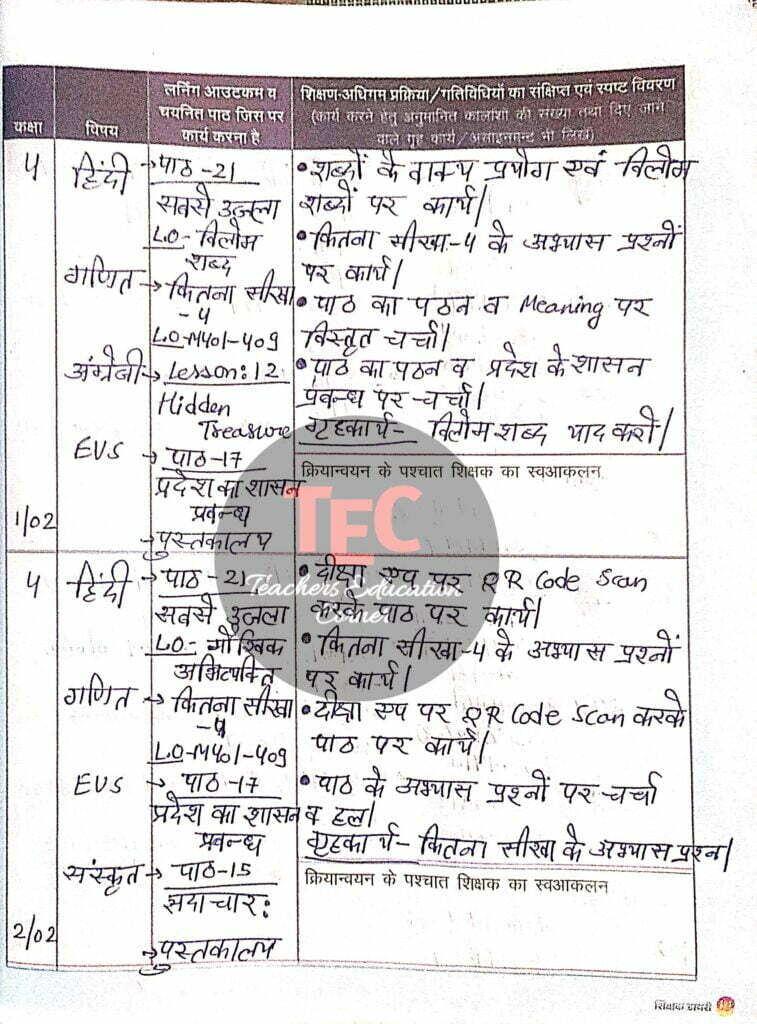 कक्षा
विषय
लर्निंग आउटकम व
चयनित पाठ जिस पर
कार्य करना है
शिक्षण-अधिगम प्रक्रिया/गतिविधियों का संक्षिप्त एवं स्पष्ट विवरण
(कार्य करने हेतु अनुमानित कालांशों की संख्या तथा दिए जाने
वाले गृह कार्य/असाइनमेन्ट भी लिखें)
4
1/02
हिंदी
गणित
अंग्रेजी
EVS
→ पाठ -21
सबसे उजला
L.O- विलोम
शब्द
→ कितना सीखा
-4
L.O-M401-409
→ Lesson:12
Hidden
Treasure
→ पाठ -17
प्रदेश का शासन
प्रबन्ध
→ पुस्तकालय
• शब्दों के वाक्य प्रयोग एवं विलोम
शब्दों पर कार्य।
• कितना सीखा-4 के अभ्यास प्रश्नों
पर कार्य।
• पाठ का पठन व Meaning पर
विस्तृत चर्चा।
• पाठ का पठन व प्रदेश के शासन
प्रबन्ध पर चर्चा।
गृहकार्य- विलोम शब्द याद करो।
क्रियान्वयन के पश्चात शिक्षक का स्वआकलन
TEC
Teachers Education
Corner
4
2/02
हिंदी
गणित
EVS
संस्कृत
→ पाठ -21
सबसे उजला
L.O- मौखिक
अभिव्यक्ति
→ कितना सीखा
-4
L.O-M401-409
→ पाठ -17
प्रदेश का शासन
प्रबन्ध
→ पाठ-15
सदाचार:
→ पुस्तकालय
• दीक्षा एप पर QR Code Scan
करके पाठ पर कार्य।
• कितना सीखा-4 के अभ्यास प्रश्नों
पर कार्य।
• दीक्षा एप पर QR Code Scan करके
पाठ पर कार्य।
• पाठ के अभ्यास प्रश्नों पर चर्चा
व हल।
गृहकार्य- कितना सीखा के अभ्यास प्रश्न।
क्रियान्वयन के पश्चात शिक्षक का स्वआकलन
शिक्षक डायरी